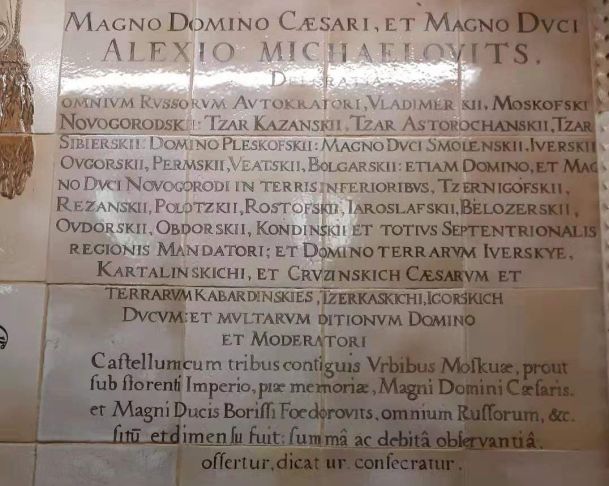 MAGNO DOMINO CÆSARI, ET MAGNO DVCI
ALEXIO MICHAELOVITS,
DEI GRATIA
OMNIVM RVSSORVM AVTOKRATORI, VLADIMERKII, MOSKOFSKI
NOVOGORODSKII: TZAR KAZANSKII, TZAR ASTOROCHANSKII, TZAR
SIBIERSKII: DOMINO PLESKOFSKII: MAGNO DVCI SMOLENSKII, IVERSKII
OVGORSKII, PERMSKII, VEATSKII, BOLGARSKII: ETIAM DOMINO, ET MAG
NO DVCI NOVOGORODI IN TERRIS INFERIORIBVS, TZERNIGOFSKII,
REZANSKII, POLOTZKII, ROSTOFSKII, IAROSLAFSKII, BELOZERSKII,
OVDORSKII, OBDORSKII, KONDINSKII ET TOTIVS SEPTENTRIONALIS
REGIONIS MANDATORI; ET DOMINO TERRARVM IVERSKYE,
KARTALINSKICHI, ET GRVZINSKICH CÆSARVM ET
TERRARVM KABARDINSKIES, TZERKASKICHI, IGORSKICH
DVCVM: ET MVLTARVM DITIONVM DOMINO
ET MODERATORI
Caſtellum cum tribus contiguis Vrbibus Moſkuæ, prout
ſub florenti Imperio, piæ memoriæ, Magni Domini Cæſaris.
et Magni Ducis Boriſſi Foedorovits, omnium Ruſſorum, &c.
ſitū et dimenſu fuit: ſummâ ac debitâ obſervantiâ,
offertur, dicatur, conſecratur.